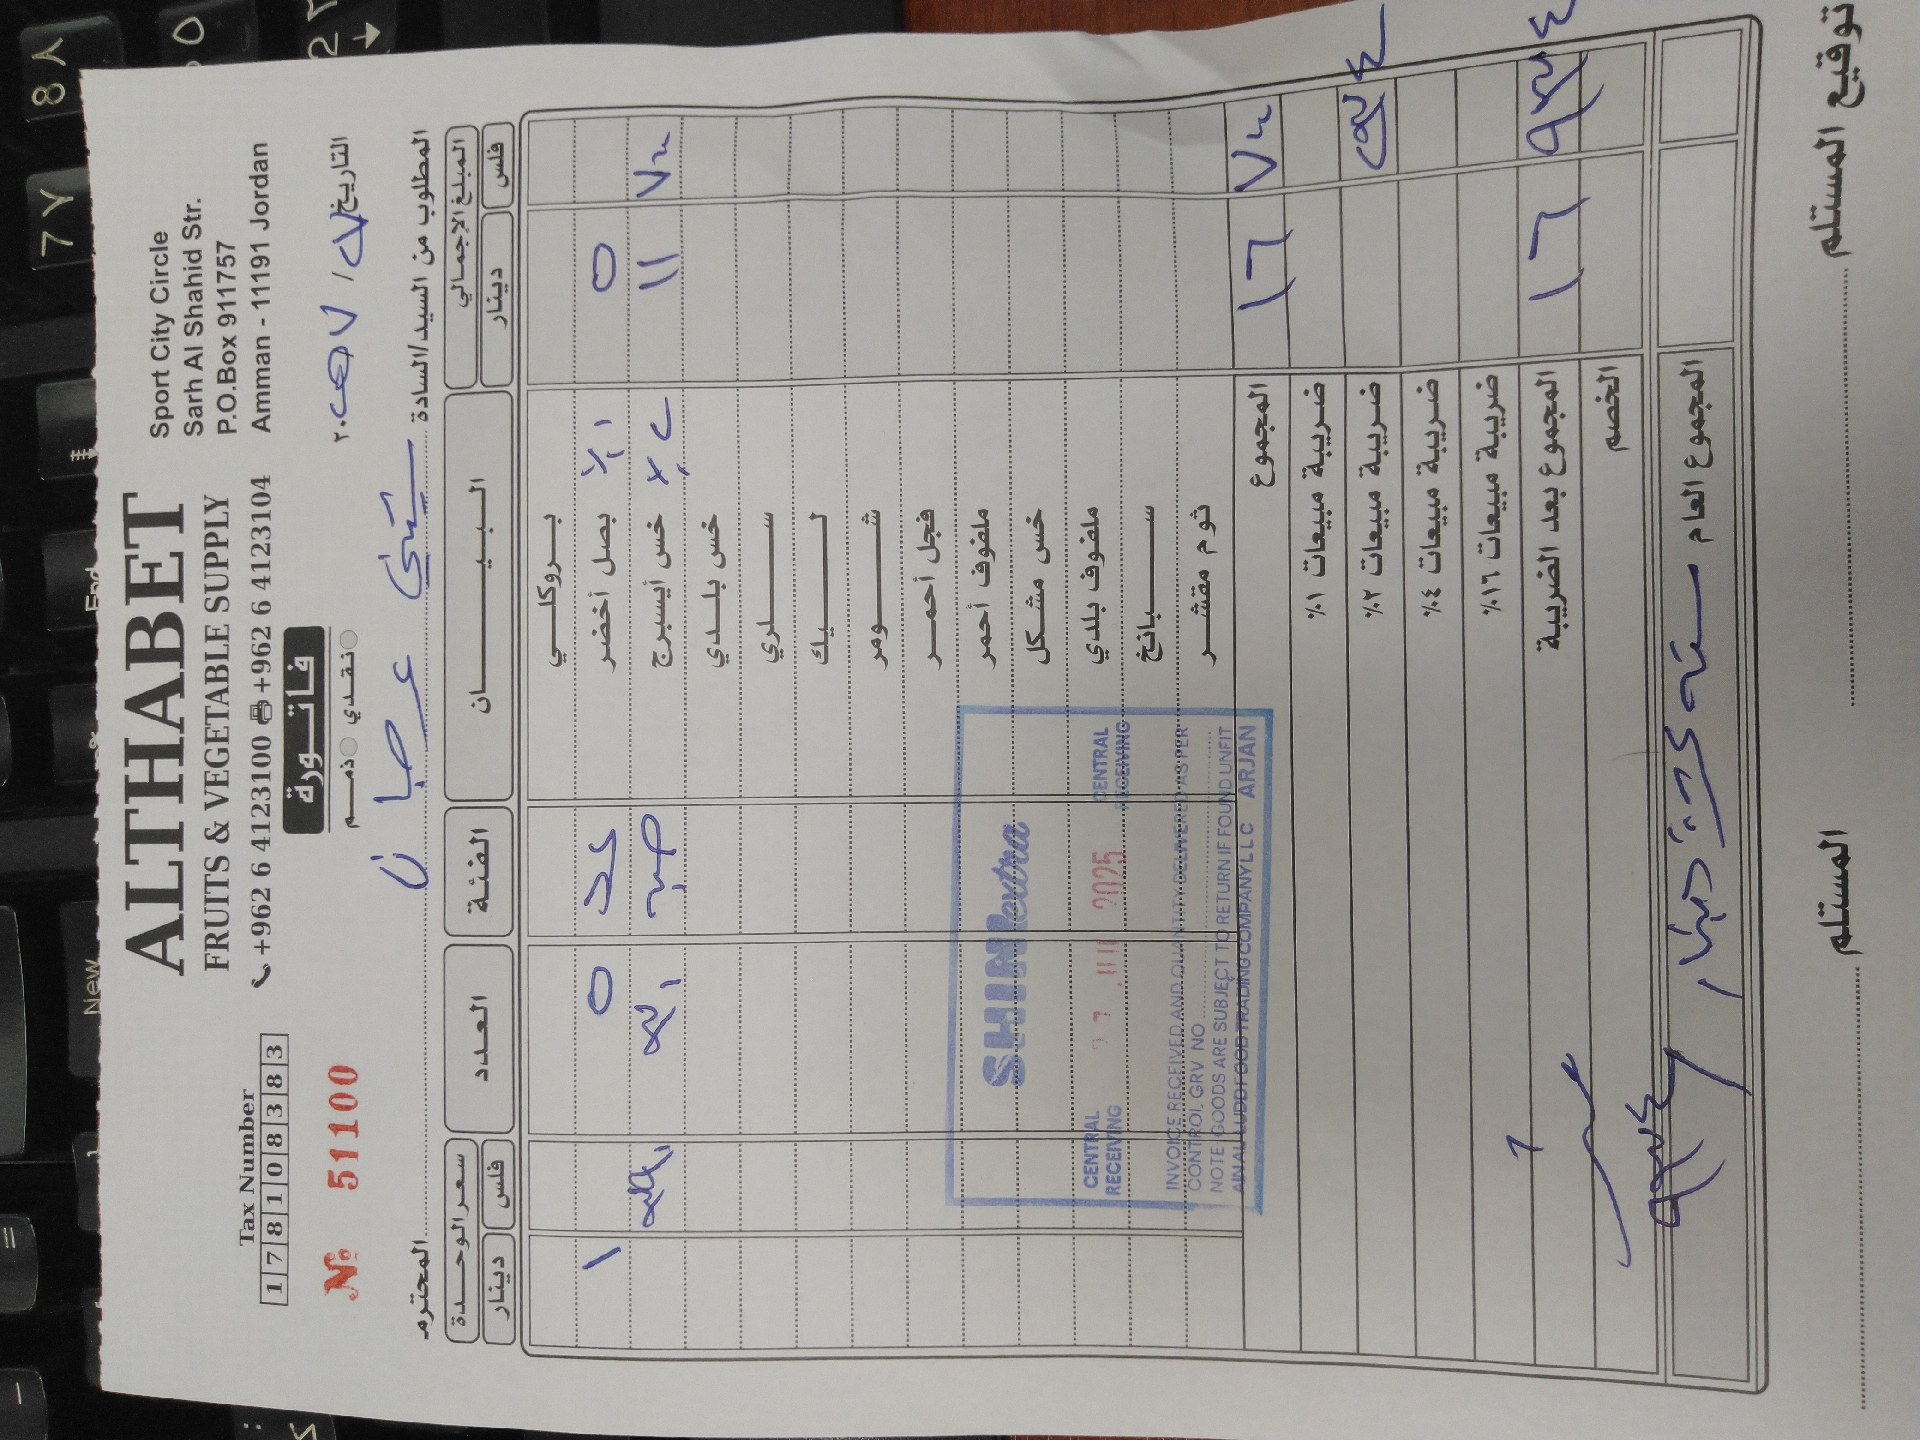 ALTHABET
FRUITS & VEGETABLE SUPPLY
+962 6 4123100 +962 6 4123104
Sport City Circle
Sarh Al Shahid Str.
P.O.Box 911757
Amman - 11191 Jordan
Tax Number
1 7 8 1 0 8 3 8 3
فاتورة
نقدي ذمم
№ 51100
التاريخ
المطلوب من السيد/السادة
المحترم
المبلغ الإجمالي
دينار فلس
البيان
الفئة
العدد
سعر الوحدة
فلس دينار
بروكلي
بصل أخضر ١٪ ٥ ٥ ١
خس أيسبرج ١١ ٧٢
خس بلدي
سلري
ليك
شومر
فجل أحمر
ملفوف أحمر
خس مشكل
ملفوف بلدي
سبانخ
ثوم مقشر
المجموع ١٦ ٧٢
ضريبة مبيعات ١٪
ضريبة مبيعات ٢٪
ضريبة مبيعات ٤٪
ضريبة مبيعات ١٦٪
المجموع بعد الضريبة ١٦ ٩٢٤
الخصم
المجموع العام ستة عشر دينار
SHINI extra
CENTRAL RECEIVING
2025
CENTRAL RECEIVING
INVOICE RECEIVED AND QUANTITY DELIVERED AS PER
CONTROL GRV NO
NOTE GOODS ARE SUBJECT TO RETURN IF FOUND UNFIT
AIN AL LUDDI FOOD TRADING COMPANY LLC ARJAN
المستلم
توقيع المستلم
8 ٨
7 ٧
End
New